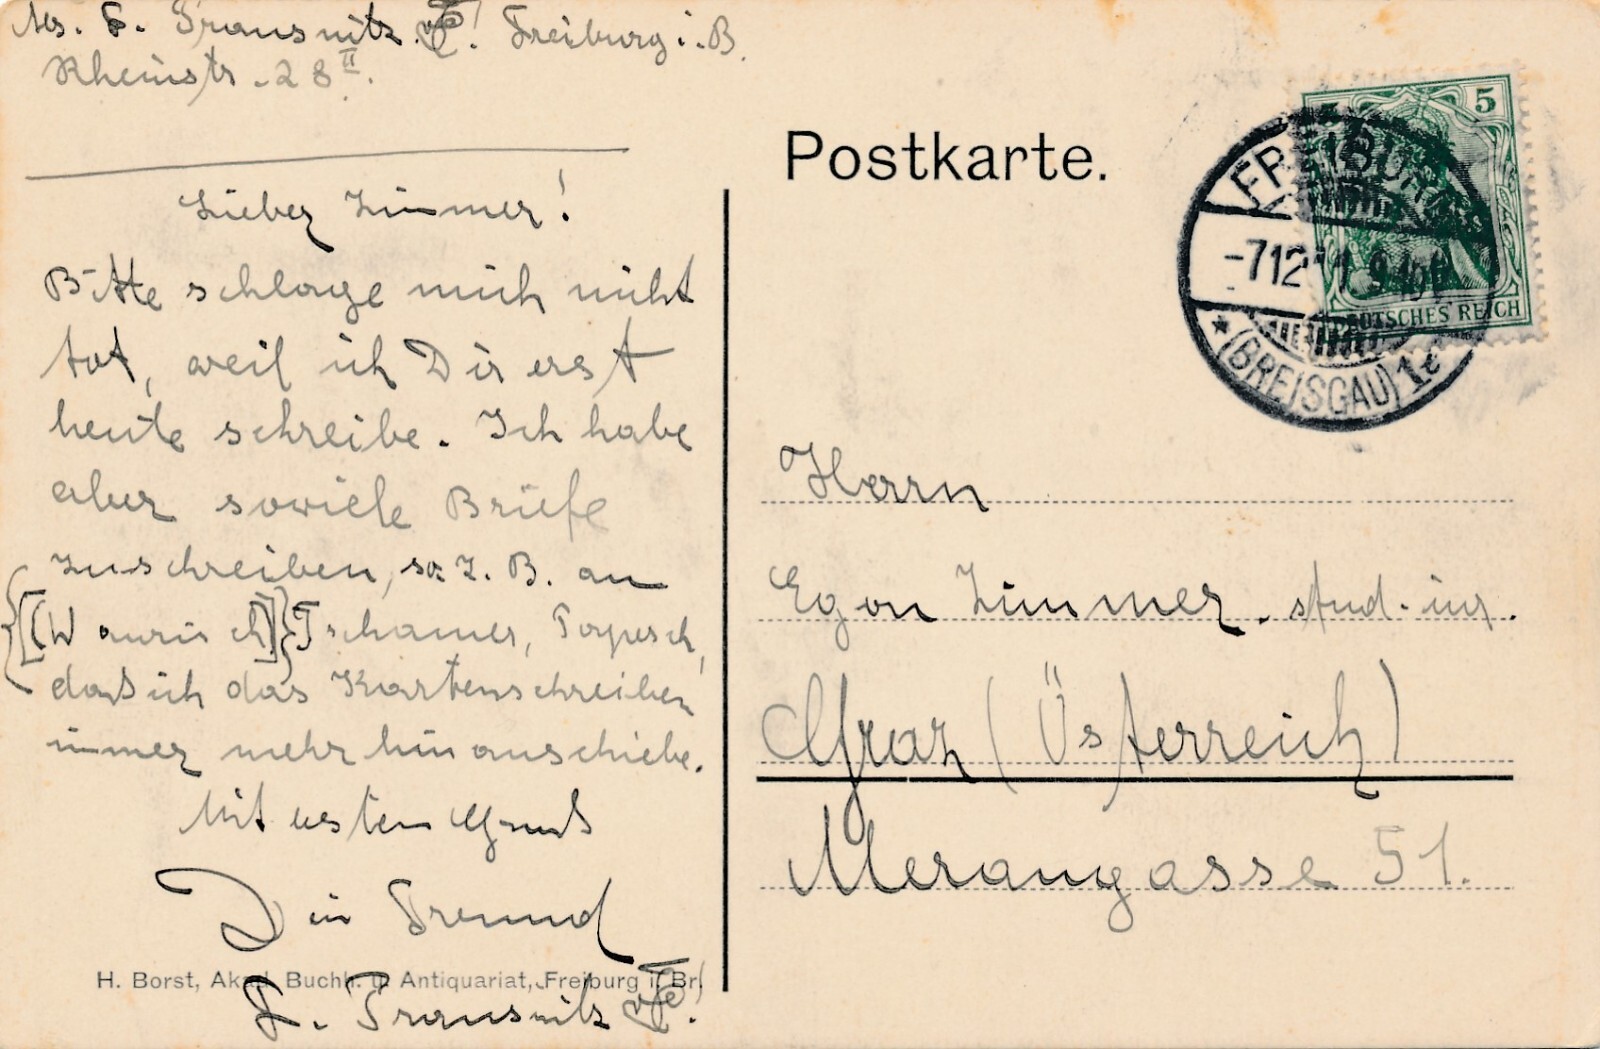 Abs. F. Transnitz Freiburg i. B.
Rheinstr. 28 II.
Lieber Zimmer!
Bitte schlage mich nicht
tot, weil ich Dir erst
heute schreibe. Ich habe
aber soviele Briefe
zuschreiben, so z. B. an
{[(Waurisch)]} Tschamer, Popesch,
daß ich das Kartenschreiben
immer mehr hinausschiebe.
Mit besten Gruß
Dein Freund
F. Transnitz
H. Borst, Akad. Buchh. u. Antiquariat, Freiburg i. Br.
Postkarte.
5
DEUTSCHES REICH
FREIBURG
-7 12 11 9-10
(BREISGAU) 1c
Herrn
Egon Zimmer. stud. ing.
Graz (Österreich)
Merangasse 51.